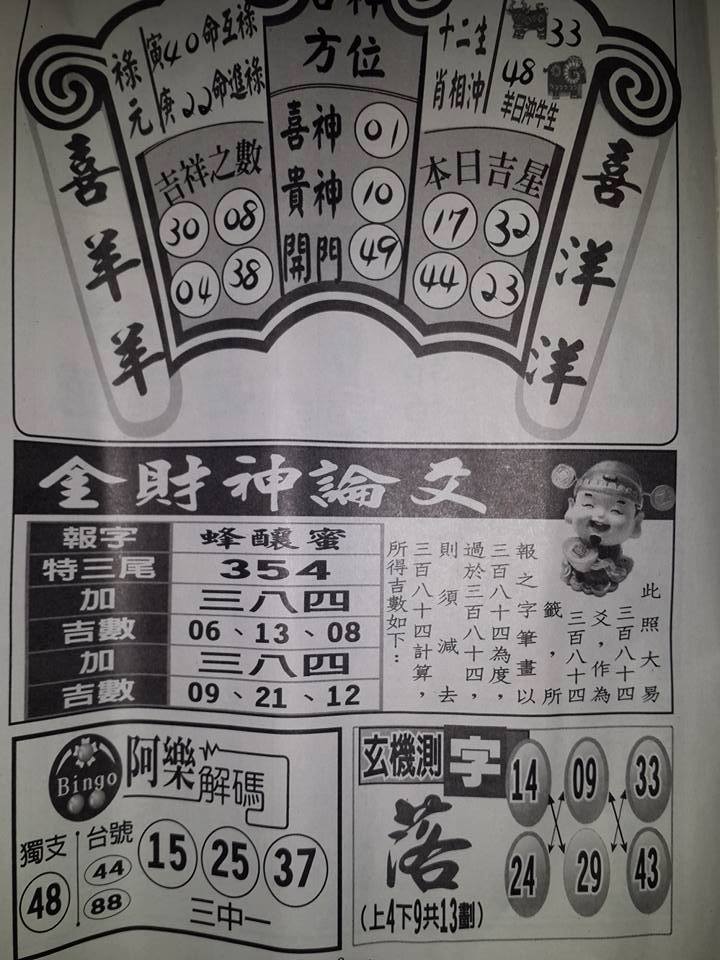 方位
祿元
寅40命互祿
庚22命進祿
十二生
肖相沖
33
48
羊日沖牛生
喜羊羊
吉祥之數
30 08
04 38
喜神 01
貴神 10
開門 49
本日吉星
17 32
44 23
喜洋洋
金財神論爻
報字 蜂釀蜜
特三尾 354
加 三八四
吉數 06、13、08
加 三八四
吉數 09、21、12
此照大易
三百八十四
爻，作為
三百八十四
籤，所
報之字筆畫以
三百八十四為度，
過於三百八十四，
則須減去
三百八十四計算，
所得吉數如下：
Bingo
阿樂解碼
獨支
48
台號
44
88
15 25 37
三中一
玄機測字
落
(上4下9共13劃)
14 09 33
24 29 43